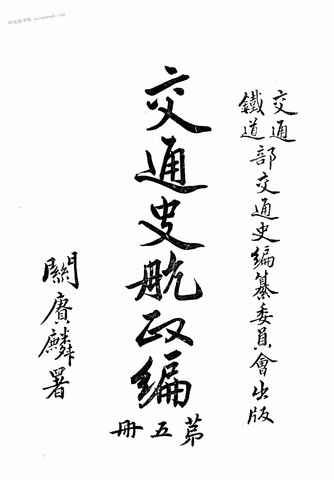 交通
鐵道
部交通史編纂委員會出版
交通史航政編
第五冊
關賡麟署